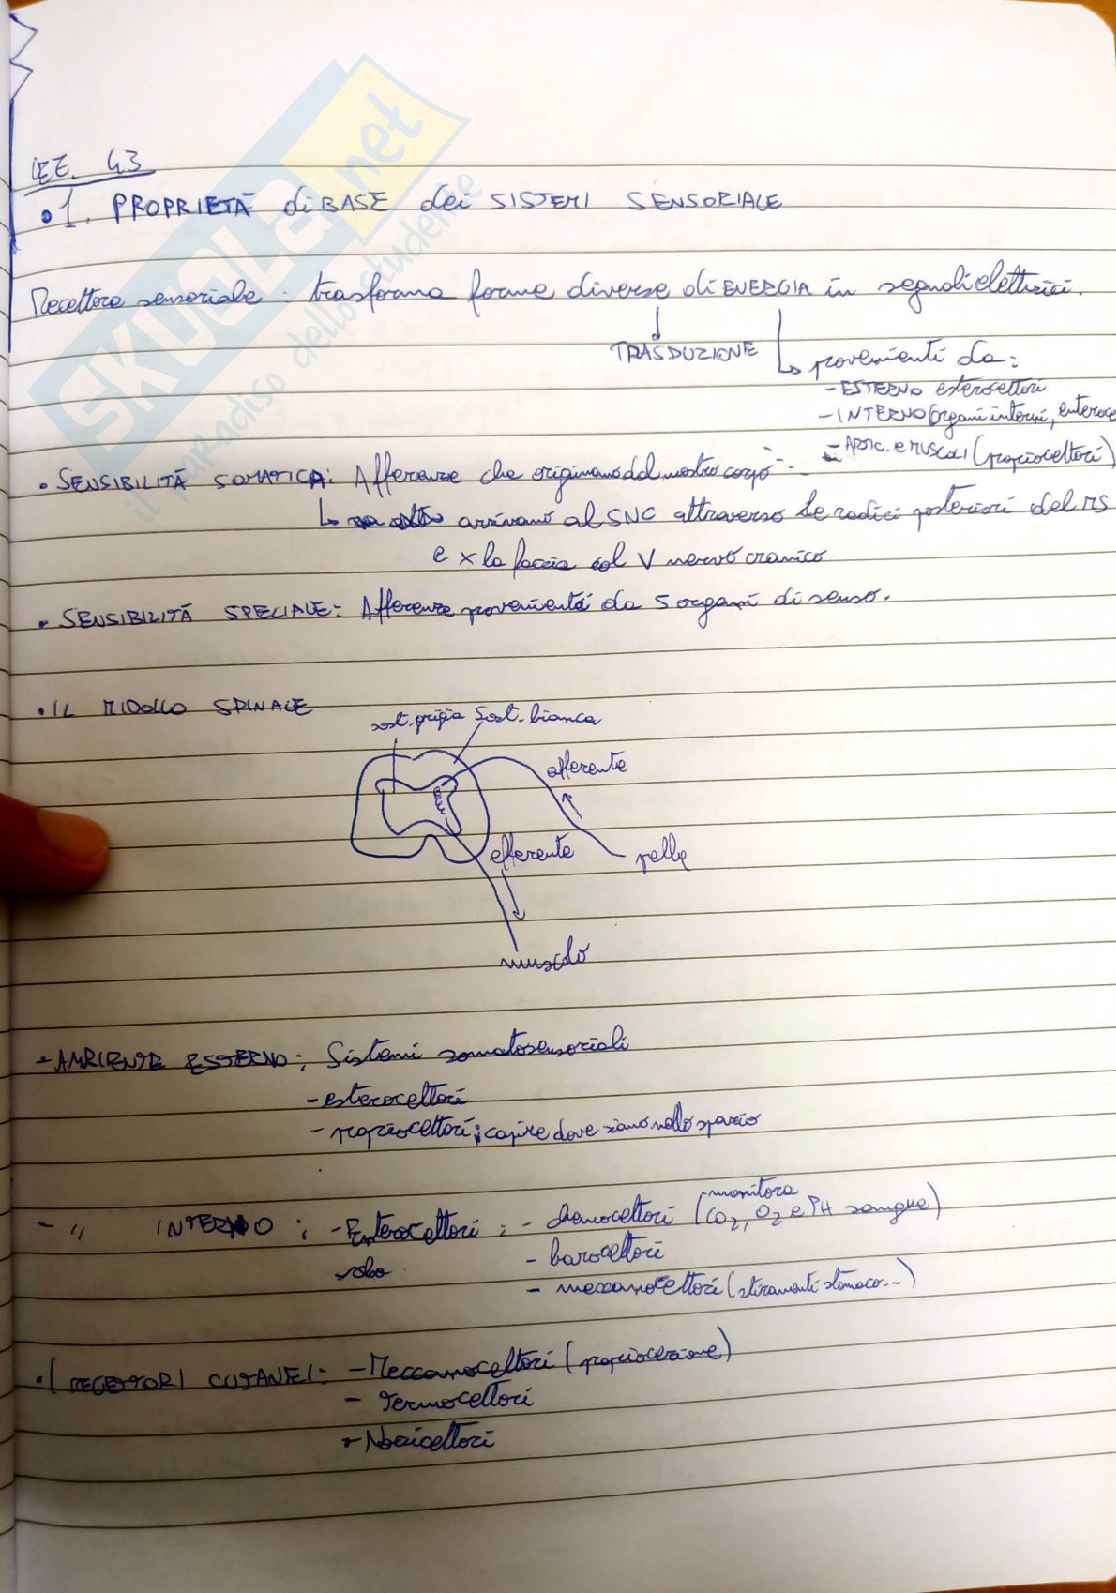 LEZ. 43
•1. PROPRIETÀ di BASE dei SISTEMI SENSORIALE
Recettore sensoriale: trasforma forme diverse di ENERGIA in segnali elettrici.
TRASDUZIONE
↳ provenienti da:
- ESTERNO esterocettori
- INTERNO (organi interni, enteroce
- ARTIC. e MUSCOLI (propriocettori)
• SENSIBILITÀ SOMATICA: Afferenze che originano dal nostro corpo
↳ arrivano al SNC attraverso le radici posteriori del MS
e x la faccia col V nervo cranico
• SENSIBILITÀ SPECIALE: Afferenze provenienti da 5 organi di senso.
• IL MIDOLLO SPINALE
sost. grigia sost. bianca
afferente
efferente
pelle
muscolo
- AMBIENTE ESTERNO: Sistemi somatosensoriali
- esterocettori
- propriocettori: capire dove siamo nello spazio
- " INTERNO: - Enterocettori: - chemocettori (monitora CO2, O2 e PH sangue)
- barocettori
- meccanocettori (stiramenti stomaco...)
• I RECETTORI CUTANEI: - Meccanocettori (propriocezione)
- Termocettori
- Nocicettori
SKUOLA.net
il paradiso dello studente